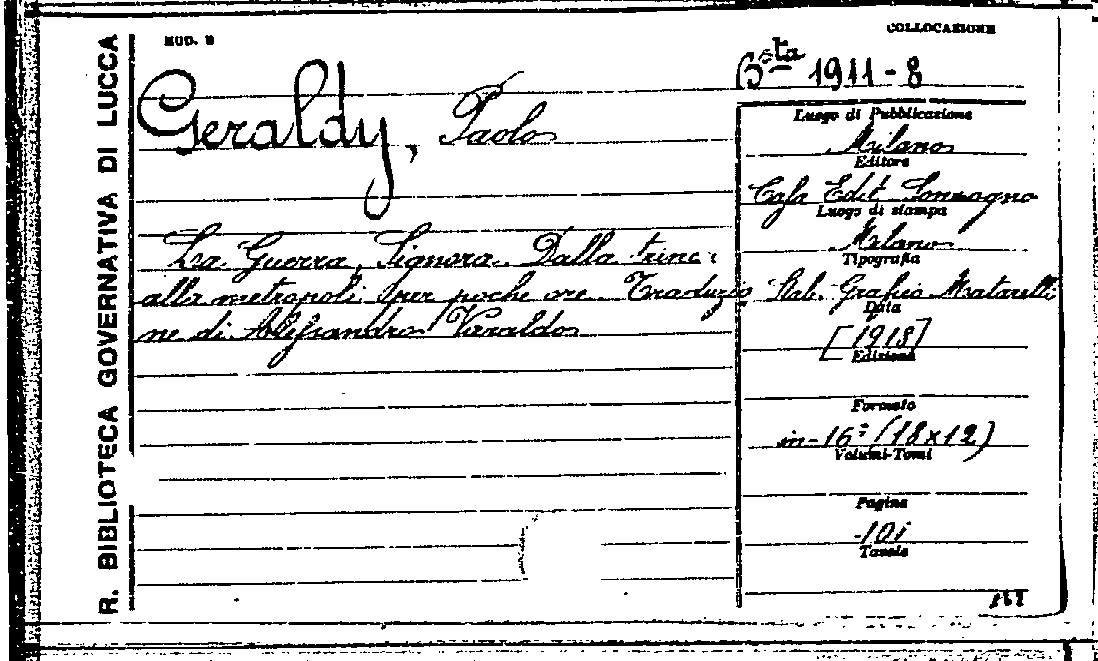 R. BIBLIOTECA GOVERNATIVA DI LUCCA
MOD. B
COLLOCAZIONE
Bsta 1911-8
Geraldy, Paolo
La Guerra, Signora. Dalla trinc
alla metropoli per poche ore. Traduzio
ne di Alessandro Varaldo
Luogo di Pubblicazione
Milano
Editore
Casa Edit. Sonzogno
Luogo di stampa
Milano
Tipografia
Stab. Grafico Matarelli
Data
[1918]
Edizione
Formato
in-16° (18x12)
Volumi-Tomi
Pagine
101
Tavole